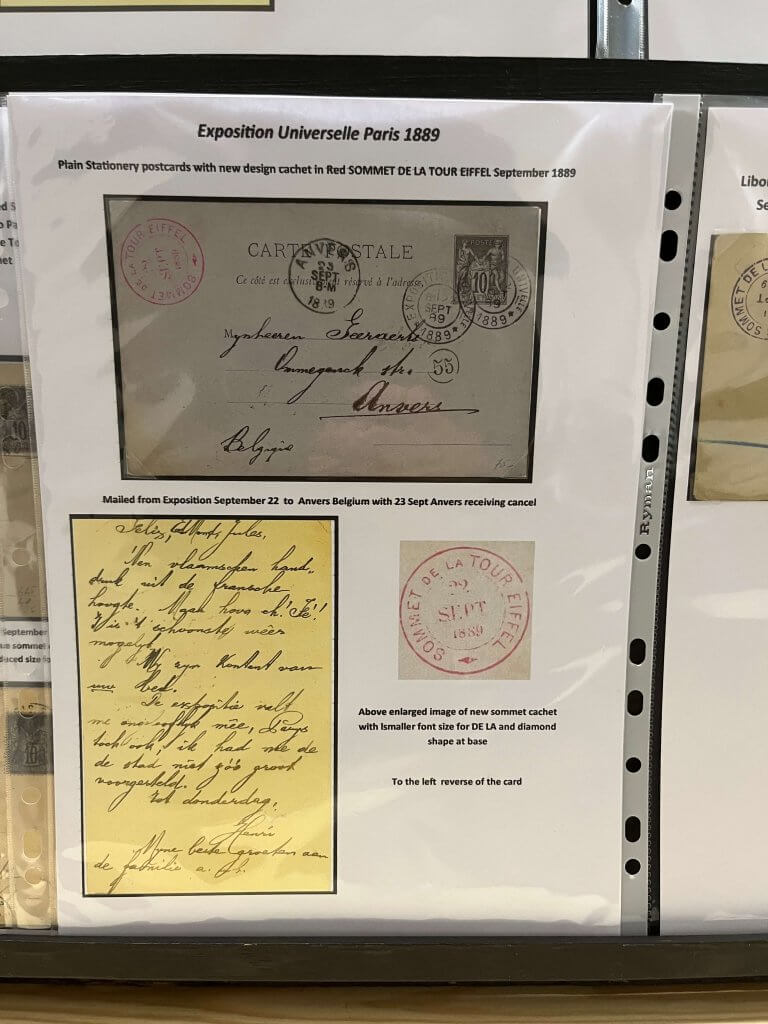 Exposition Universelle Paris 1889
Plain Stationery postcards with new design cachet in Red SOMMET DE LA TOUR EIFFEL September 1889
SOMMET DE LA TOUR EIFFEL
22
SEPT
1889
CARTE POSTALE
Ce côté est exclusivement réservé à l'adresse
ANVERS
23
SEPT
8 M
1889
POSTES
10
EXPOSITION UNIVERSELLE
SEPT
89
1889
Mynheeren Geraerts
Ommeganck str.
55
Anvers
Belgigie
Mailed from Exposition September 22 to Anvers Belgium with 23 Sept Anvers receiving cancel
Felix, Edmond, Jules,
'Nen vlaamschen hand-
druk uit de fransche
hoogte. Maar hoog eh! Jé!
't is 't schoonste wéer
mogelijk.
Wy zyn kontent van
uw bed.
De expositie valt
me mée, Parys
toch ook; ik had me de
de stad niet zóó groot
voorgesteld.
tot donderdag,
Henri
Myne beste groeten aan
de familie
SOMMET DE LA TOUR EIFFEL
22
SEPT
1889
Above enlarged image of new sommet cachet
with lsmaller font size for DE LA and diamond
shape at base
To the left reverse of the card
Ryman
Libo
Se
SOMMET DE L
September
ue sommet
duced size fo
10